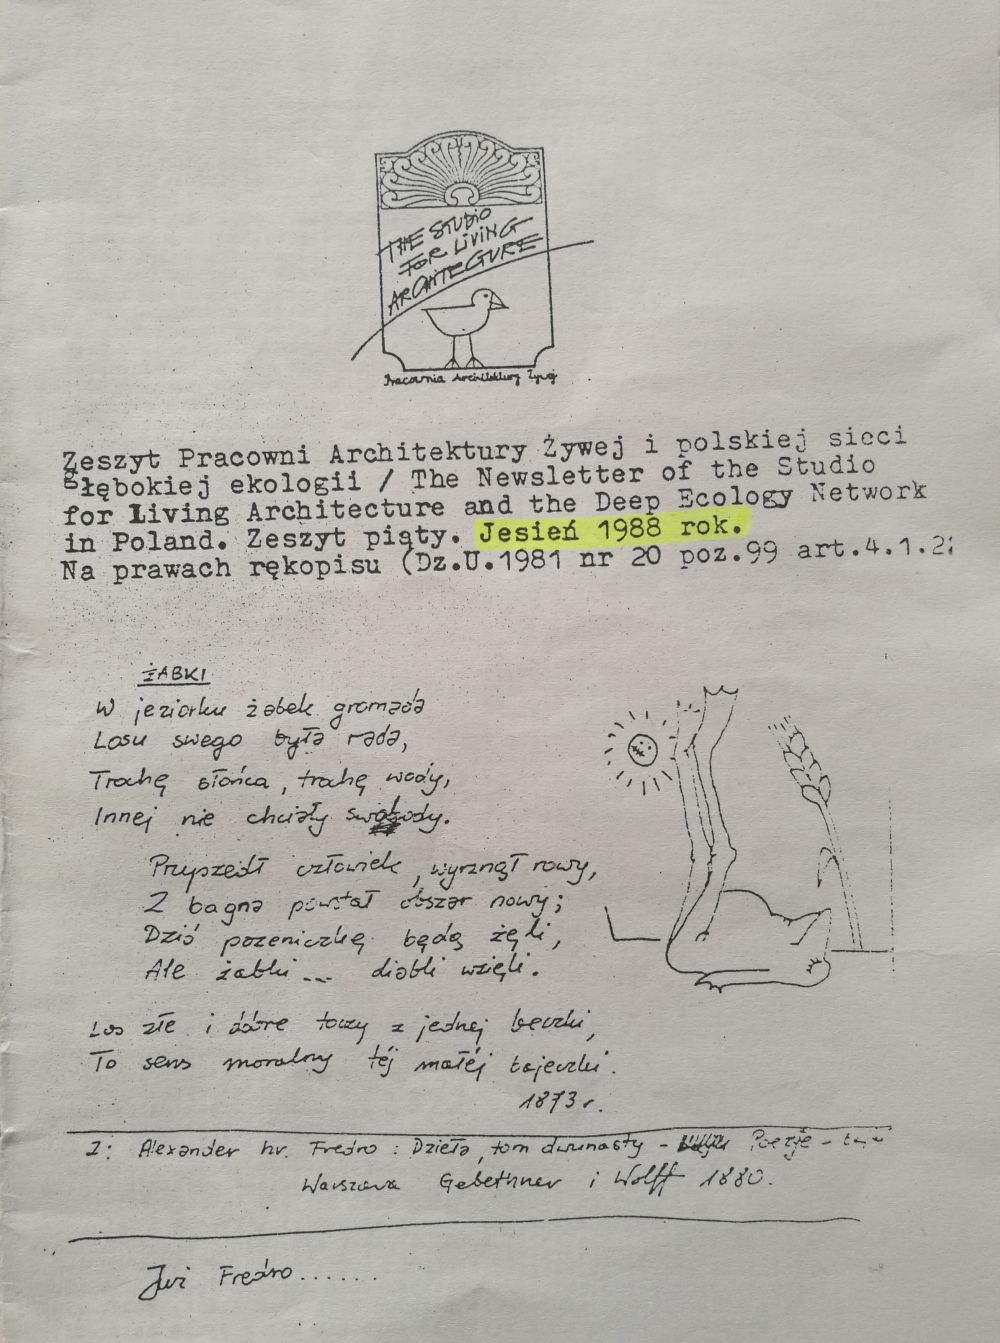 THE STUDIO
FOR LIVING
ARCHITECTURE
Pracownia Architektury Żywej
Zeszyt Pracowni Architektury Żywej i polskiej sieci
głębokiej ekologii / The Newsletter of the Studio
for Living Architecture and the Deep Ecology Network
in Poland. Zeszyt piąty. Jesień 1988 rok.
Na prawach rękopisu (Dz.U.1981 nr 20 poz.99 art.4.1.2;
ŻABKI
W jeziorku żabek gromada
Losu swego była rada,
Trochę słońca, trochę wody,
Innej nie chciały swobody.
Przyszedł człowiek, wyrznął rowy,
Z bagna powstał obszar nowy;
Dziś pszeniczkę będą żęli,
Ale żabki... diabli wzięli.
Los złe i dobre toczy z jednej beczki,
To sens moralny téj małéj bajeczki.
1873 r.
Z: Alexander hr. Fredro: Dzieła, tom dwunasty - Poezje -
Warszawa Gebethner i Wolff 1880.
Już Fredro......